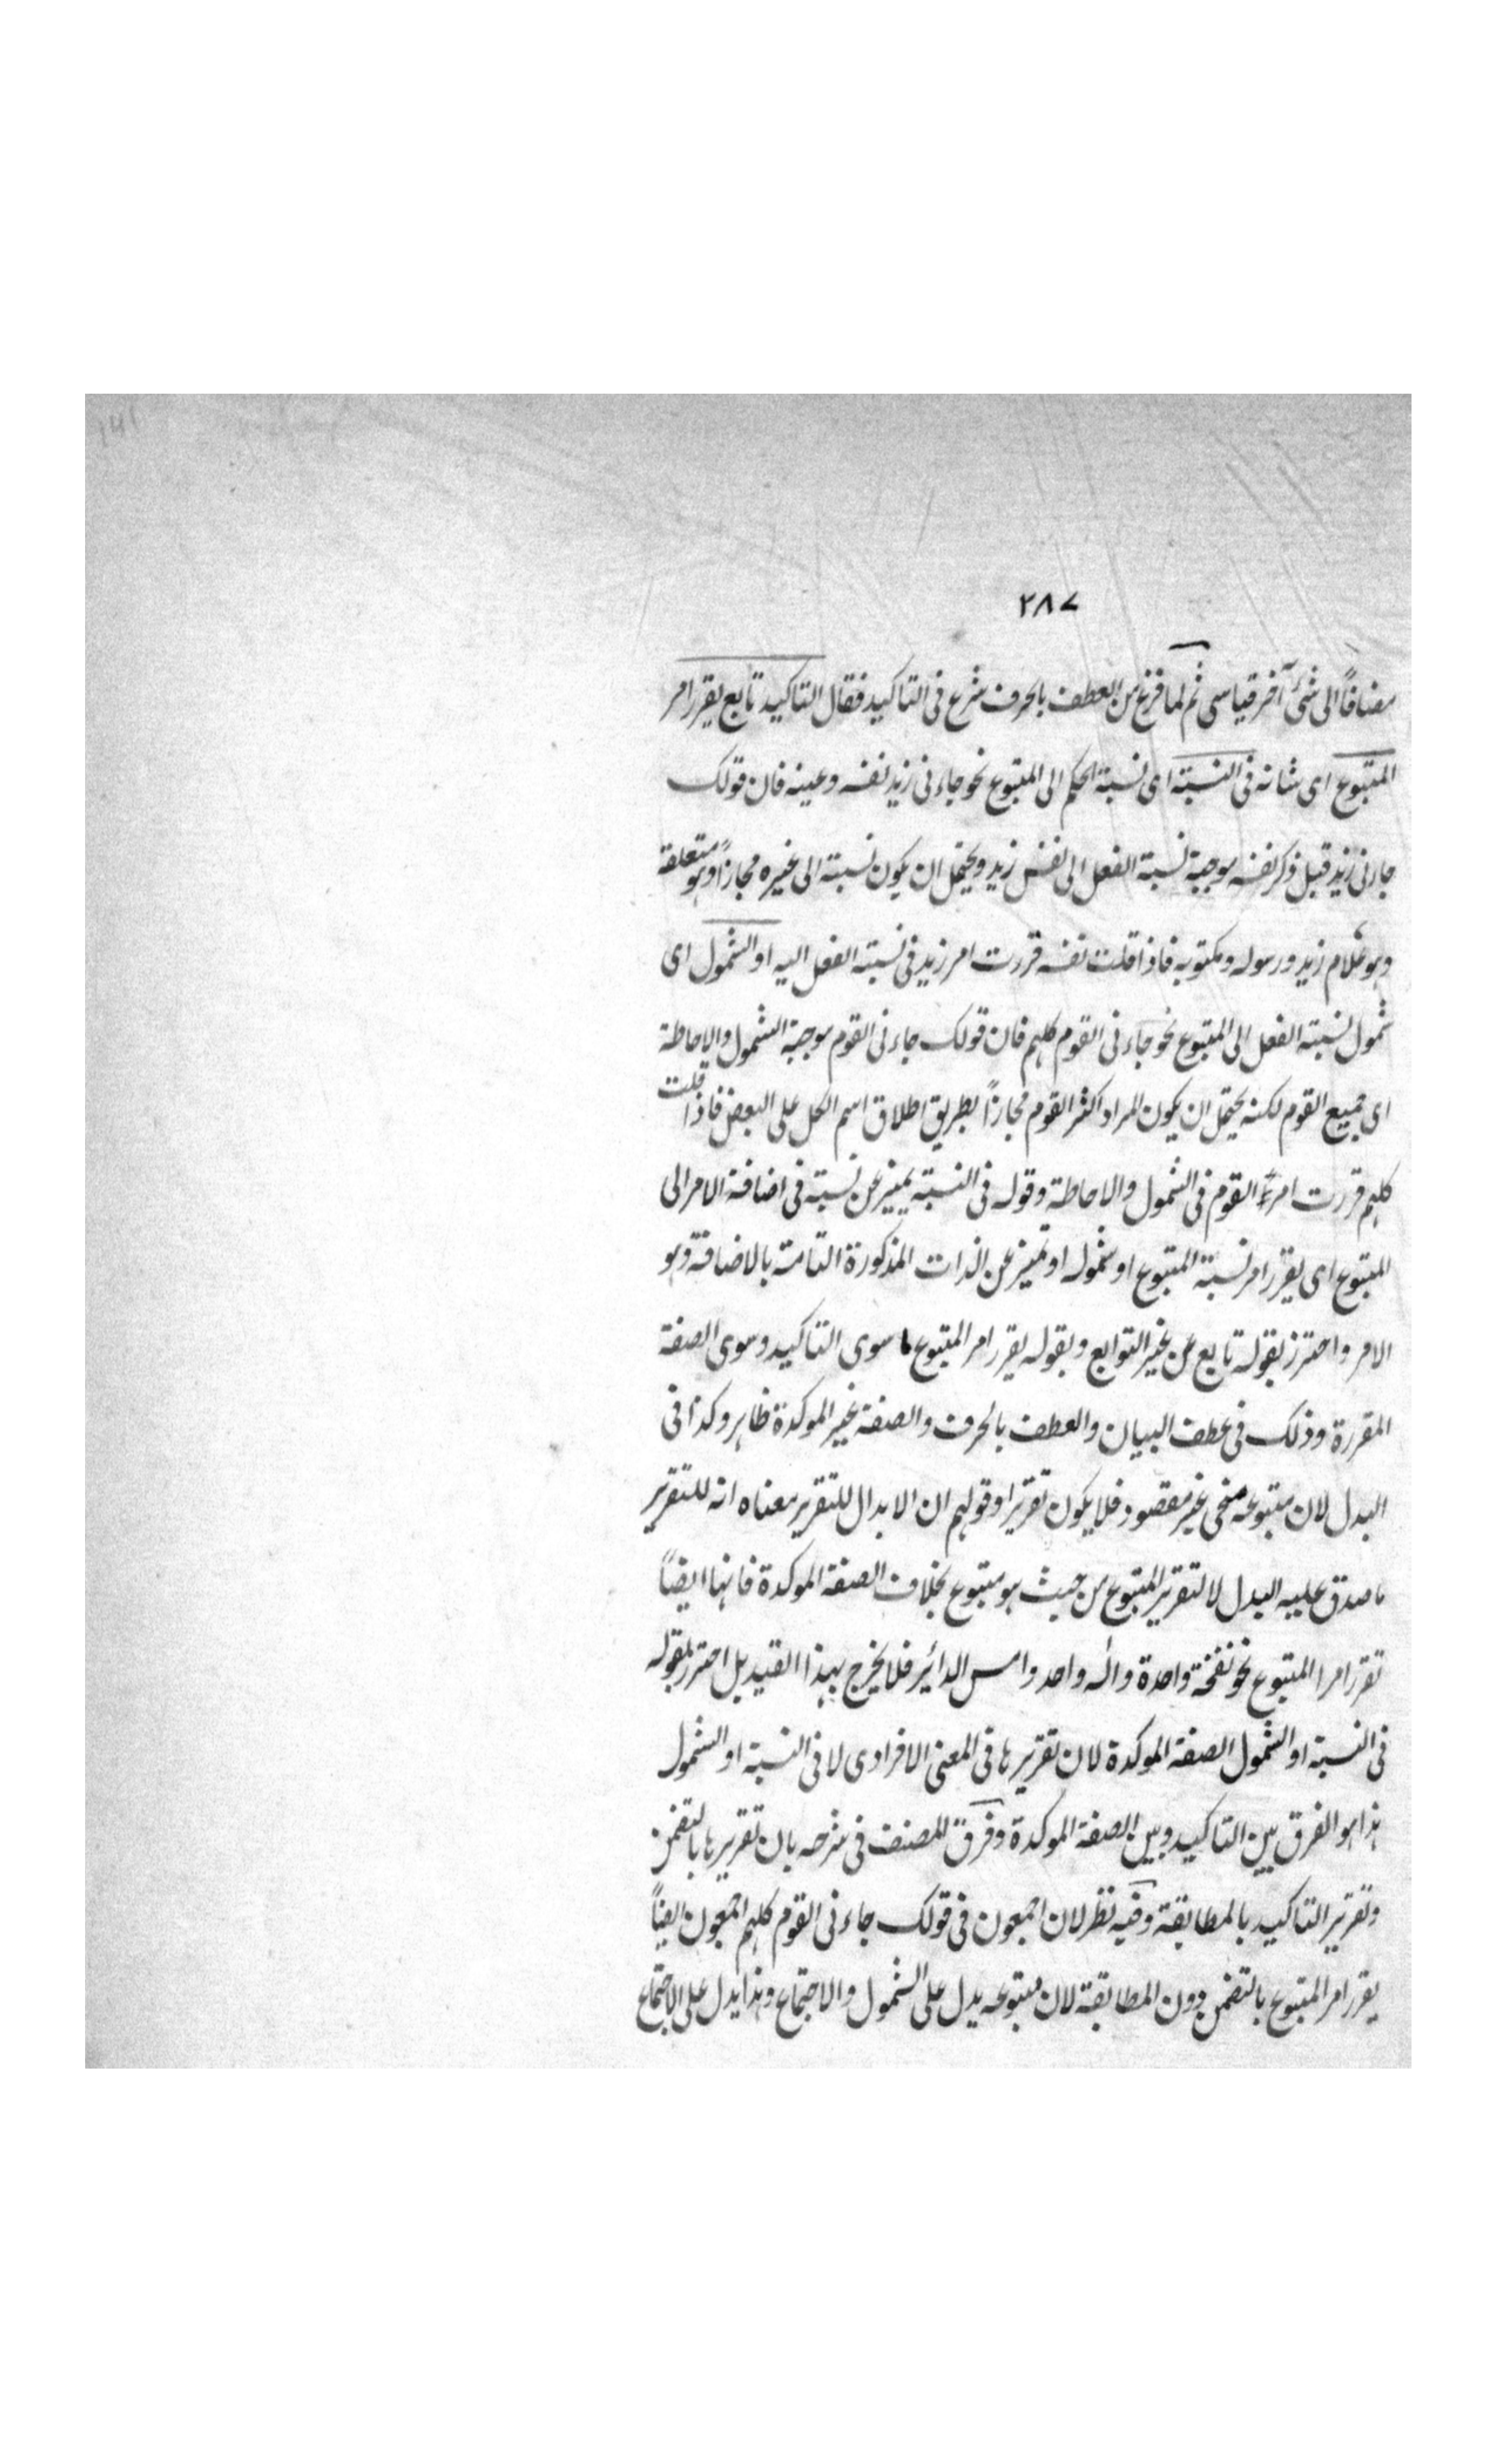 ۲۸۷
مضافاً الى شئ آخر قياسى ثم لما فرغ من العطف بالحرف شرع فى التاكيد فقال التاكيد تابع يقرر امر
المتبوع اى شانه فى النسبة اى نسبة الحكم الى المتبوع نحو جاءنى زيد نفسه وعينه فان قولك
جاءنى زيد قبل ذكر نفسه موجبة نسبة الفعل الى نفس زيد ويحتمل ان يكون نسبته الى غيره مجازاً وهو متعلقه
وهو غلام زيد ورسوله ومكتوبه فاذا قلت نفسه قررت امر زيد فى نسبة الفعل اليه او الشمول اى
شمول نسبة الفعل الى المتبوع نحو جاءنى القوم كلهم فان قولك جاءنى القوم موجبة الشمول والاحاطة
اى جميع القوم لكنه يحتمل ان يكون المراد اكثر القوم مجازاً بطريق اطلاق اسم الكل على البعض فاذا قلت
كلهم قررت امر القوم فى الشمول والاحاطة وقوله فى النسبة تمييز عن نسبة فى اضافة الامر الى
المتبوع اى يقرر امر نسبة المتبوع او شموله او تمييز عن الذات المذكورة التامة بالاضافة وهو
الامر واحترز بقوله تابع عن غير التوابع وبقوله يقرر امر المتبوع ما سوى التاكيد وسوى الصفة
المقررة وذلك فى عطف البيان والعطف بالحرف والصفة غير الموكدة ظاهر وكذا فى
البدل لان متبوعه منحى غير مقصود فلا يكون تقريرا وقولهم ان الابدال للتقرير معناه انه للتقرير
ما صدق عليه البدل لا لتقرير المتبوع من حيث هو متبوع بخلاف الصفة الموكدة فانها ايضاً
تقرر امر المتبوع نحو نفخة واحدة واله واحد وامس الدائر فلا يخرج بهذا القيد بل احترز بقوله
فى النسبة او الشمول الصفة الموكدة لان تقريرها فى المعنى الافرادى لا فى النسبة او الشمول
هذا هو الفرق بين التاكيد وبين الصفة الموكدة وفرق المصنف فى شرحه بان تقريرها بالتضمن
وتقرير التاكيد بالمطابقة وفيه نظر لان اجمعون فى قولك جاءنى القوم كلهم اجمعون ايضاً
يقرر امر المتبوع بالتضمن دون المطابقة لان متبوعه يدل على الشمول والاجتماع وهذا يدل على الاجتماع